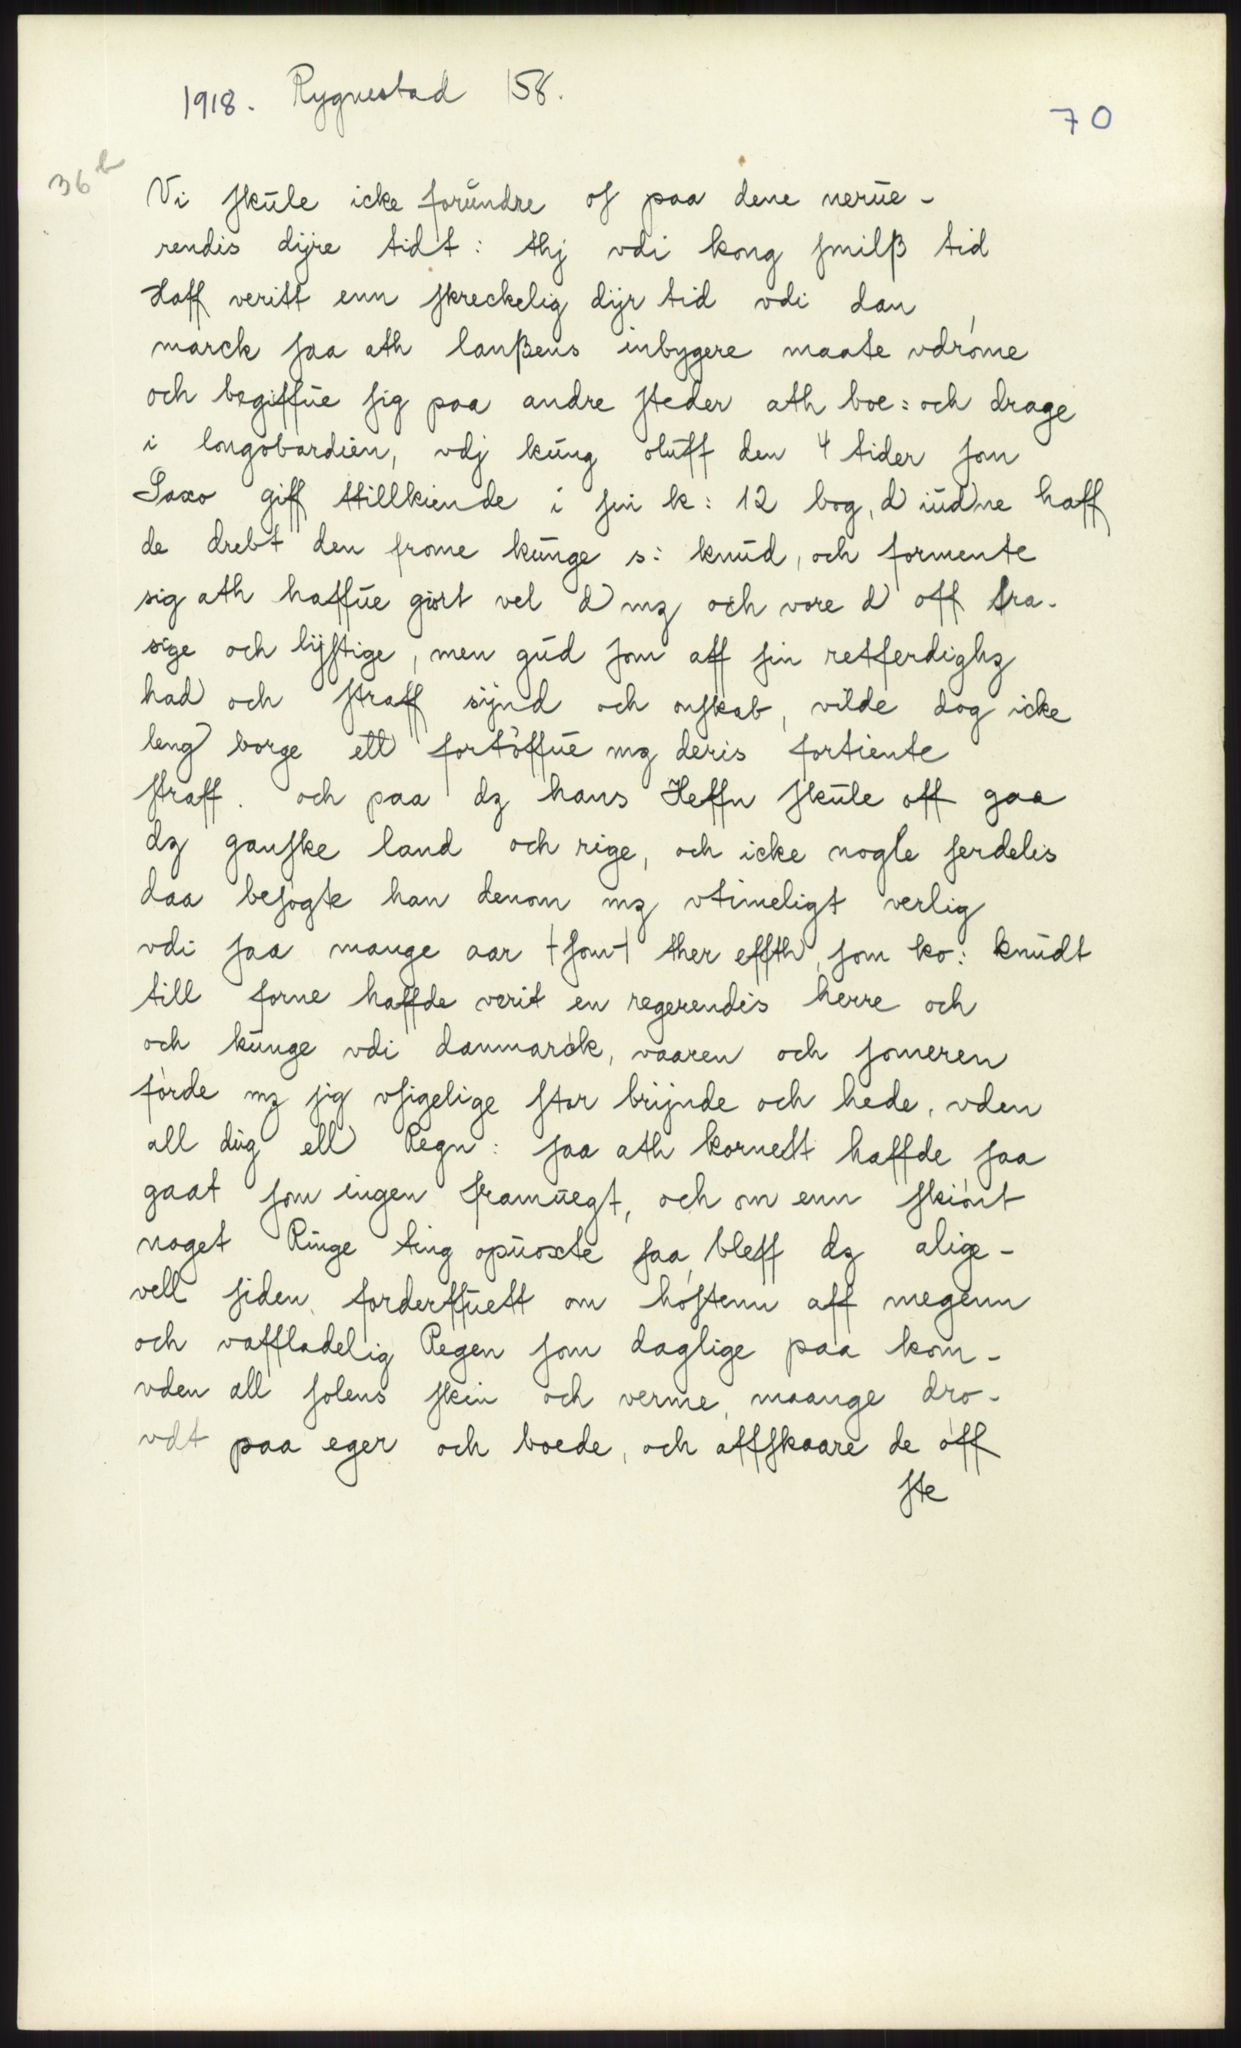 1918. Rygnestad 158.
70
36 b
Vi skule icke forundre os paa dene nerue-
rendis dÿre tidt: thj vdi kong smilß tid
Haff veritt enn skreckelig dÿr tid vdi dan
marck saa ath lanßens inbygere maate vdrøme
och begiffue sig paa andre steder ath boe: och drage
i longobardien, vdj kung oluff den 4 tider som
Saxo giff ttillkiende i sin k: 12 bog, d iudne haff
de drebt den frome kunge s: knud, och formente
sig ath haffue giort vel d mz och vore d off
sige och lÿstige, men gud som aff sin retferdighz
had och straff sÿnd och onskab, vilde dog icke
leng borge ell fortøffue mz deris fortiente
straff. och paa dz hans Heffn skule off gaa
dz ganske land och rige, och icke nogle serdelis
daa besøgte han denom mz vtimeligt verlig
vdi saa mange aar +som+ ther effth, som ko: knudt
till forne haffde verit en regerendis herre och
och kunge vdi danmarck, vaaren och someren
førde mz sig vsigelige stor brÿnde och hede, vden
all dug ell Regn: saa ath kornett haffde saa
gaat som ingen framuegt, och om enn skiønt
noget Ringe ting opuoxte saa, bleff dz alige-
vell siden forderffuett om høstenn aff megenn
och vaffladelig Regen som daglige paa kom-
vden all solens skin och verme, maange dro-
vdt paa eger och boede, och affskaare de off
ste